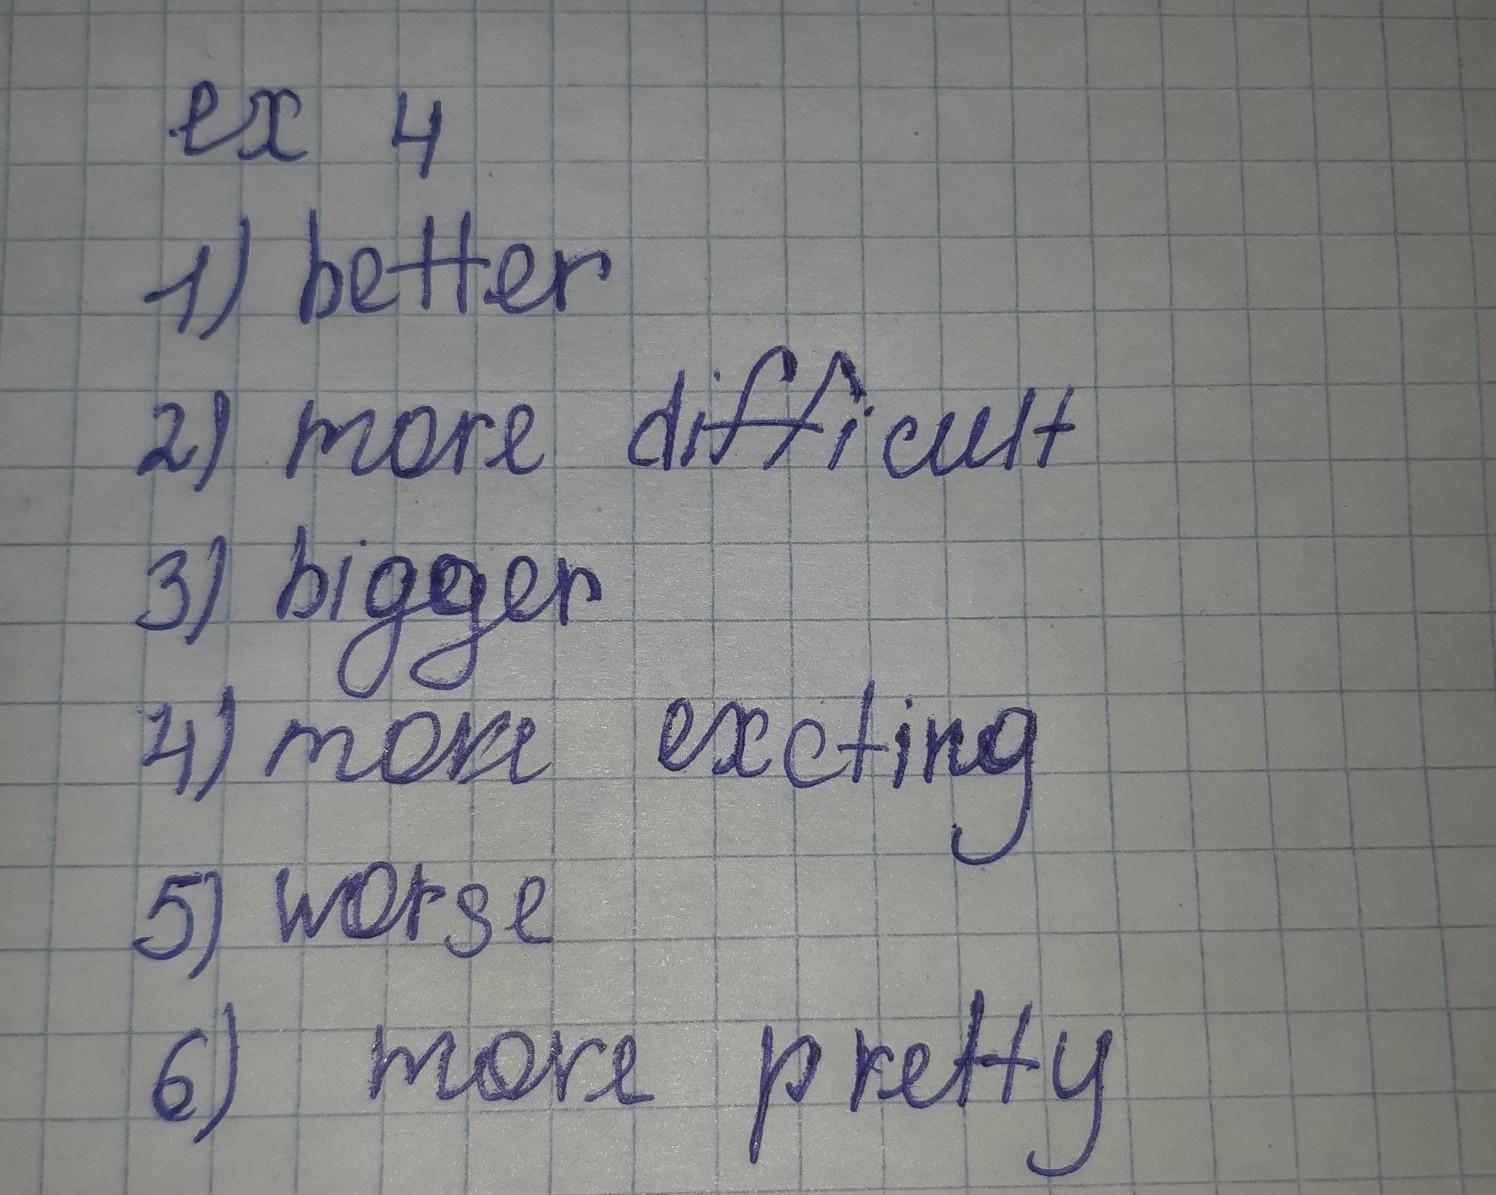 ex 4
1) better
2) more difficult
3) bigger
4) more excting
5) worse
6) more pretty